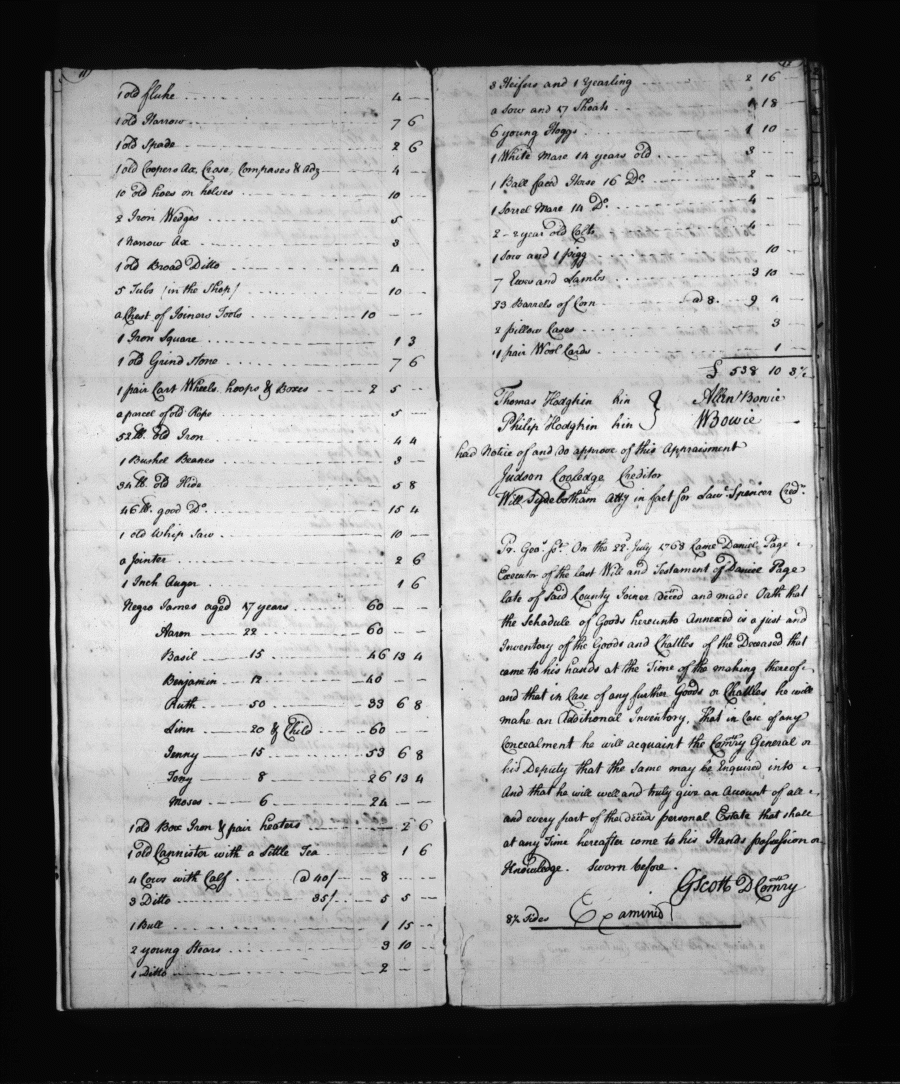 1 old fluke 4 —
1 old Harrow 7 6
1 old Spade 2 6
1 old Coopers Ax, Crose, Compases & Adz 4 —
10 old hoes on helves 10 —
2 Iron Wedges 5
1 narrow Ax 3
1 old Broad Ditto 4
5 Tubs /in the Shop/ 10 —
a Chest of Joiners Tools 10 — —
1 Iron Square 1 3
1 old Grind Stone 7 6
1 pair Cart Wheels, hoops & Boxes 2 5 —
a parcel of old Rope 5 —
52 lb. old Iron 4 4
1 Bushel Beanes 3
34 lb. old Hide 5 8
46 lb. good Do. 15 4
1 old Whip Saw 10 —
a Jointer 2 6
1 Inch Auger 1 6
Negro James aged 57 years 60 — —
Aaron 22 60 — —
Basil 15 46 13 4
Benjamin 12 40 — —
Ruth 50 33 6 8
Linn 20 & Child 60 — —
Jenny 15 53 6 8
Tony 8 26 13 4
Moses 6 24 — —
1 old Box Iron & pair heaters 2 6
1 old Cannister with a Little Tea 1 6
4 Cows with Calf @ 40/ 8 — —
3 Ditto 35/ 5 5 —
1 Bull 1 15 —
2 young Stears 3 10 —
1 Ditto 2 — —
3 Heifers and 1 Yearling 2 16
a Sow and 57 Shoats 1 18
6 young Hoggs 1 10
1 White Mare 14 years old 3 —
1 Ball faced Horse 16 Do. 2 —
1 Sorrel Mare 14 Do. 4
2 - 2 year old Colts 4
1 Sow and 1 pigg 10
7 Ewes and Lambs 3 10
23 Barrels of Corn @ 8. 9 4
2 pillow Cases 3
1 pair Wool Cards 1
£ 538 10 3½
Thomas Hodgkin kin } Allen Bowie
Philip Hodgkin kin } W Bowie
had Notice of and do approve of this Appraisment
Judson Cooledge Creditor
Will Sydebotham Atty in fact for Law. Spencer Credr.
Pr. Geos. sct. On the 22d. July 1768 Came Daniel Page
Executor of the last Will and Testament of Daniel Page
late of Said County Joiner Deced and made Oath that
the Schedule of Goods hereunto Annexed is a just and
Inventory of the Goods and Chattles of the Deceased that
came to his hands at the Time of the making thereof
and that in Case of any further Goods or Chattles he will
make an Additional Inventory, That in Case of any
Concealment he will acquaint the Comry General or
his Deputy that the Same may be Enquired into
And that he will well and truly give an Amount of all
and every part of the deced personal Estate that shall
at any Time hereafter come to his Hands possession or
Knowledge. Sworn before.
G Scott D Comry
87 Sides Examined